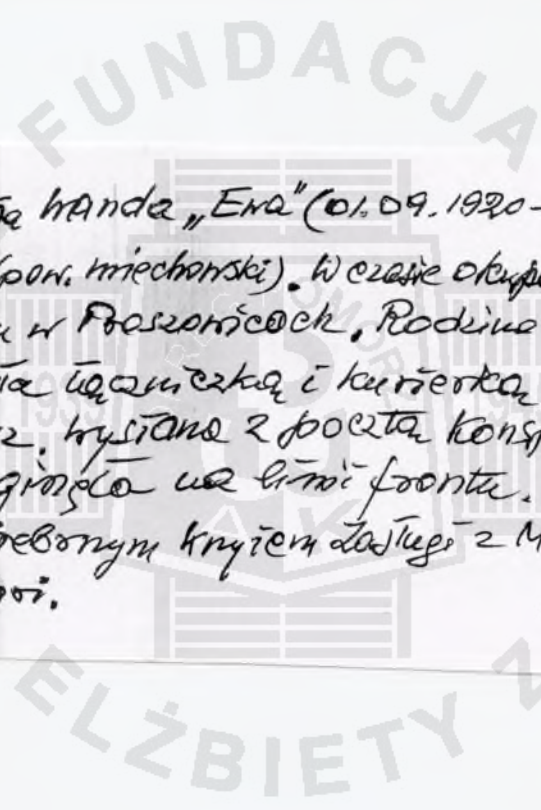 FUNDACJA
Wanda „Ewa” (01.09.1920-
(pow. miechowski). W czasie okup
w Proszowicach. Rodzina
łączniczką i kurierką
wysłana z pocztą konsp
ginęła na linii frontu.
rebrnym Krzyżem Zasługi z M
ELŻBIETY Z